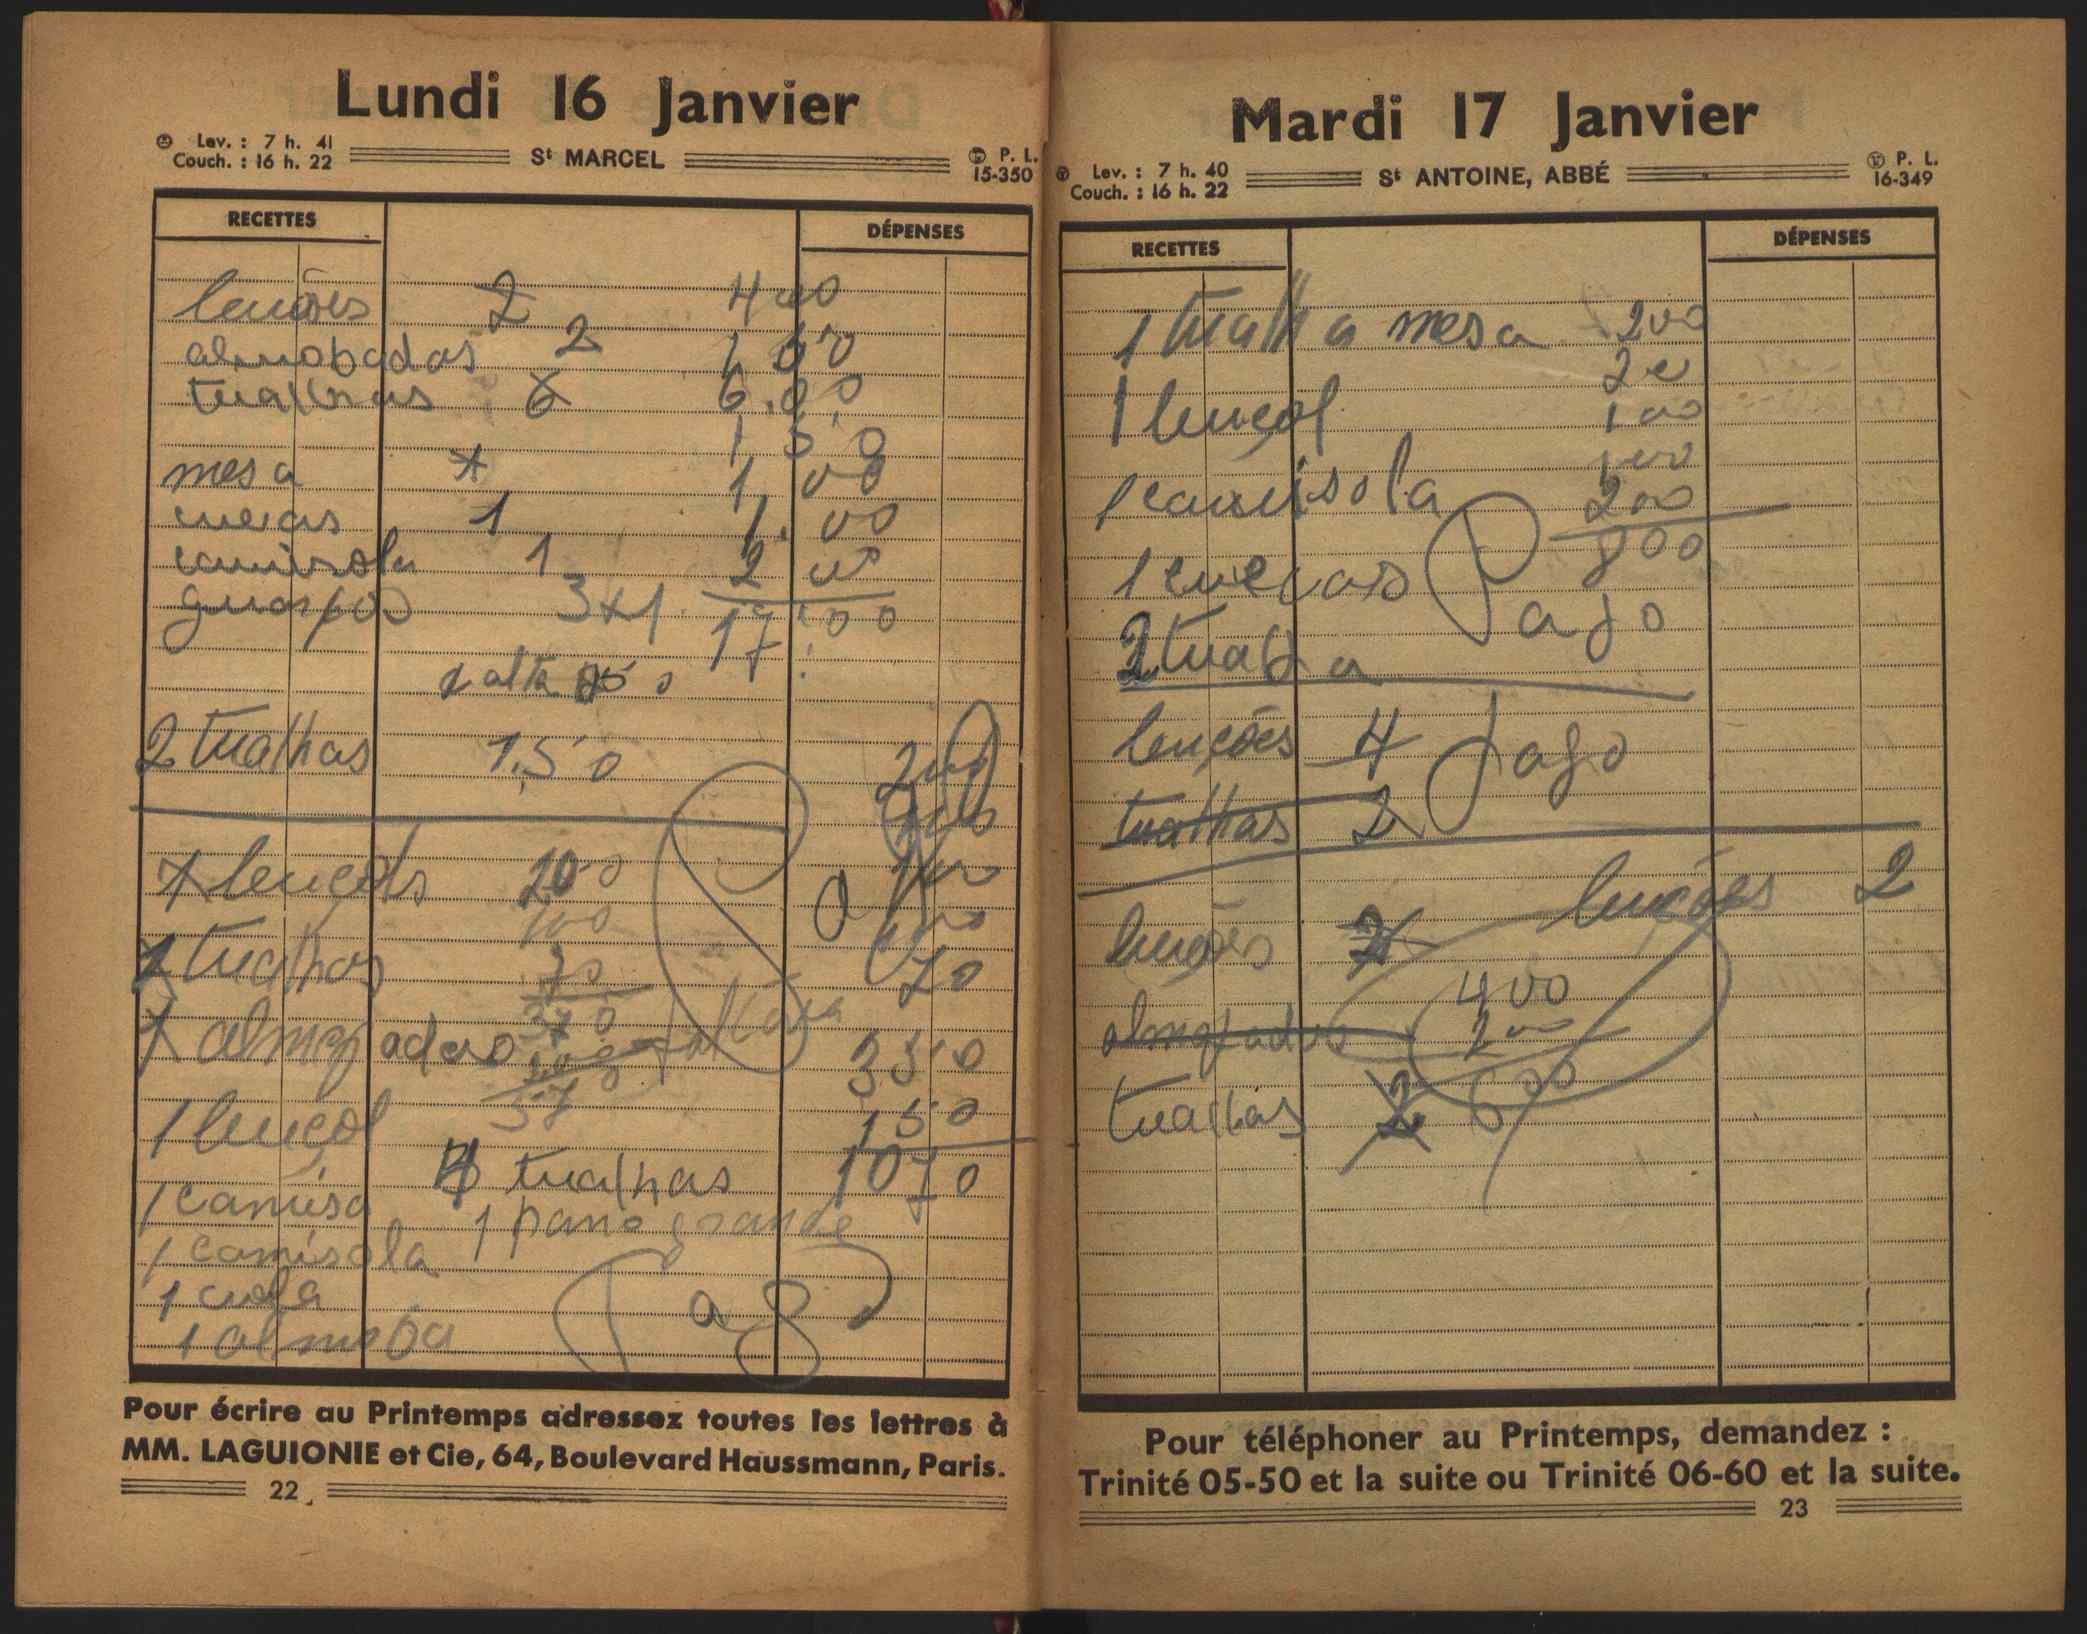 Lundi 16 Janvier
Lev. : 7 h. 41
Couch. : 16 h. 22
St MARCEL
P. L.
15-350
RECETTES
DÉPENSES
lençóes 2 400
almobadas 2
tualhas 6 6.00
1 50
mesa 1 00
cuecas 1 1.00
camisola 1 2 00
3+1 17:00
2 tualhas 1,50
lençóls
100
tualhas 70
almopadas
350
1 lençol 150
tualhas 1070
1 camisa 1 pano grande
1 camisola
1 cueca
1 almoba
Pago
Pour écrire au Printemps adressez toutes les lettres à
MM. LAGUIONIE et Cie, 64, Boulevard Haussmann, Paris.
22
Mardi 17 Janvier
Lev. : 7 h. 40
Couch. : 16 h. 22
St ANTOINE, ABBÉ
P. L.
16-349
RECETTES
DÉPENSES
1 tualha mesa 200
1 lençol 100
1 camisola 200
800
1 cuecas Pago
2 tualha
lençóes 4 Pago
tualhas 2
lençóes 2
lençóes
400
almopadas 200
tualhas 2 600
Pour téléphoner au Printemps, demandez :
Trinité 05-50 et la suite ou Trinité 06-60 et la suite.
23